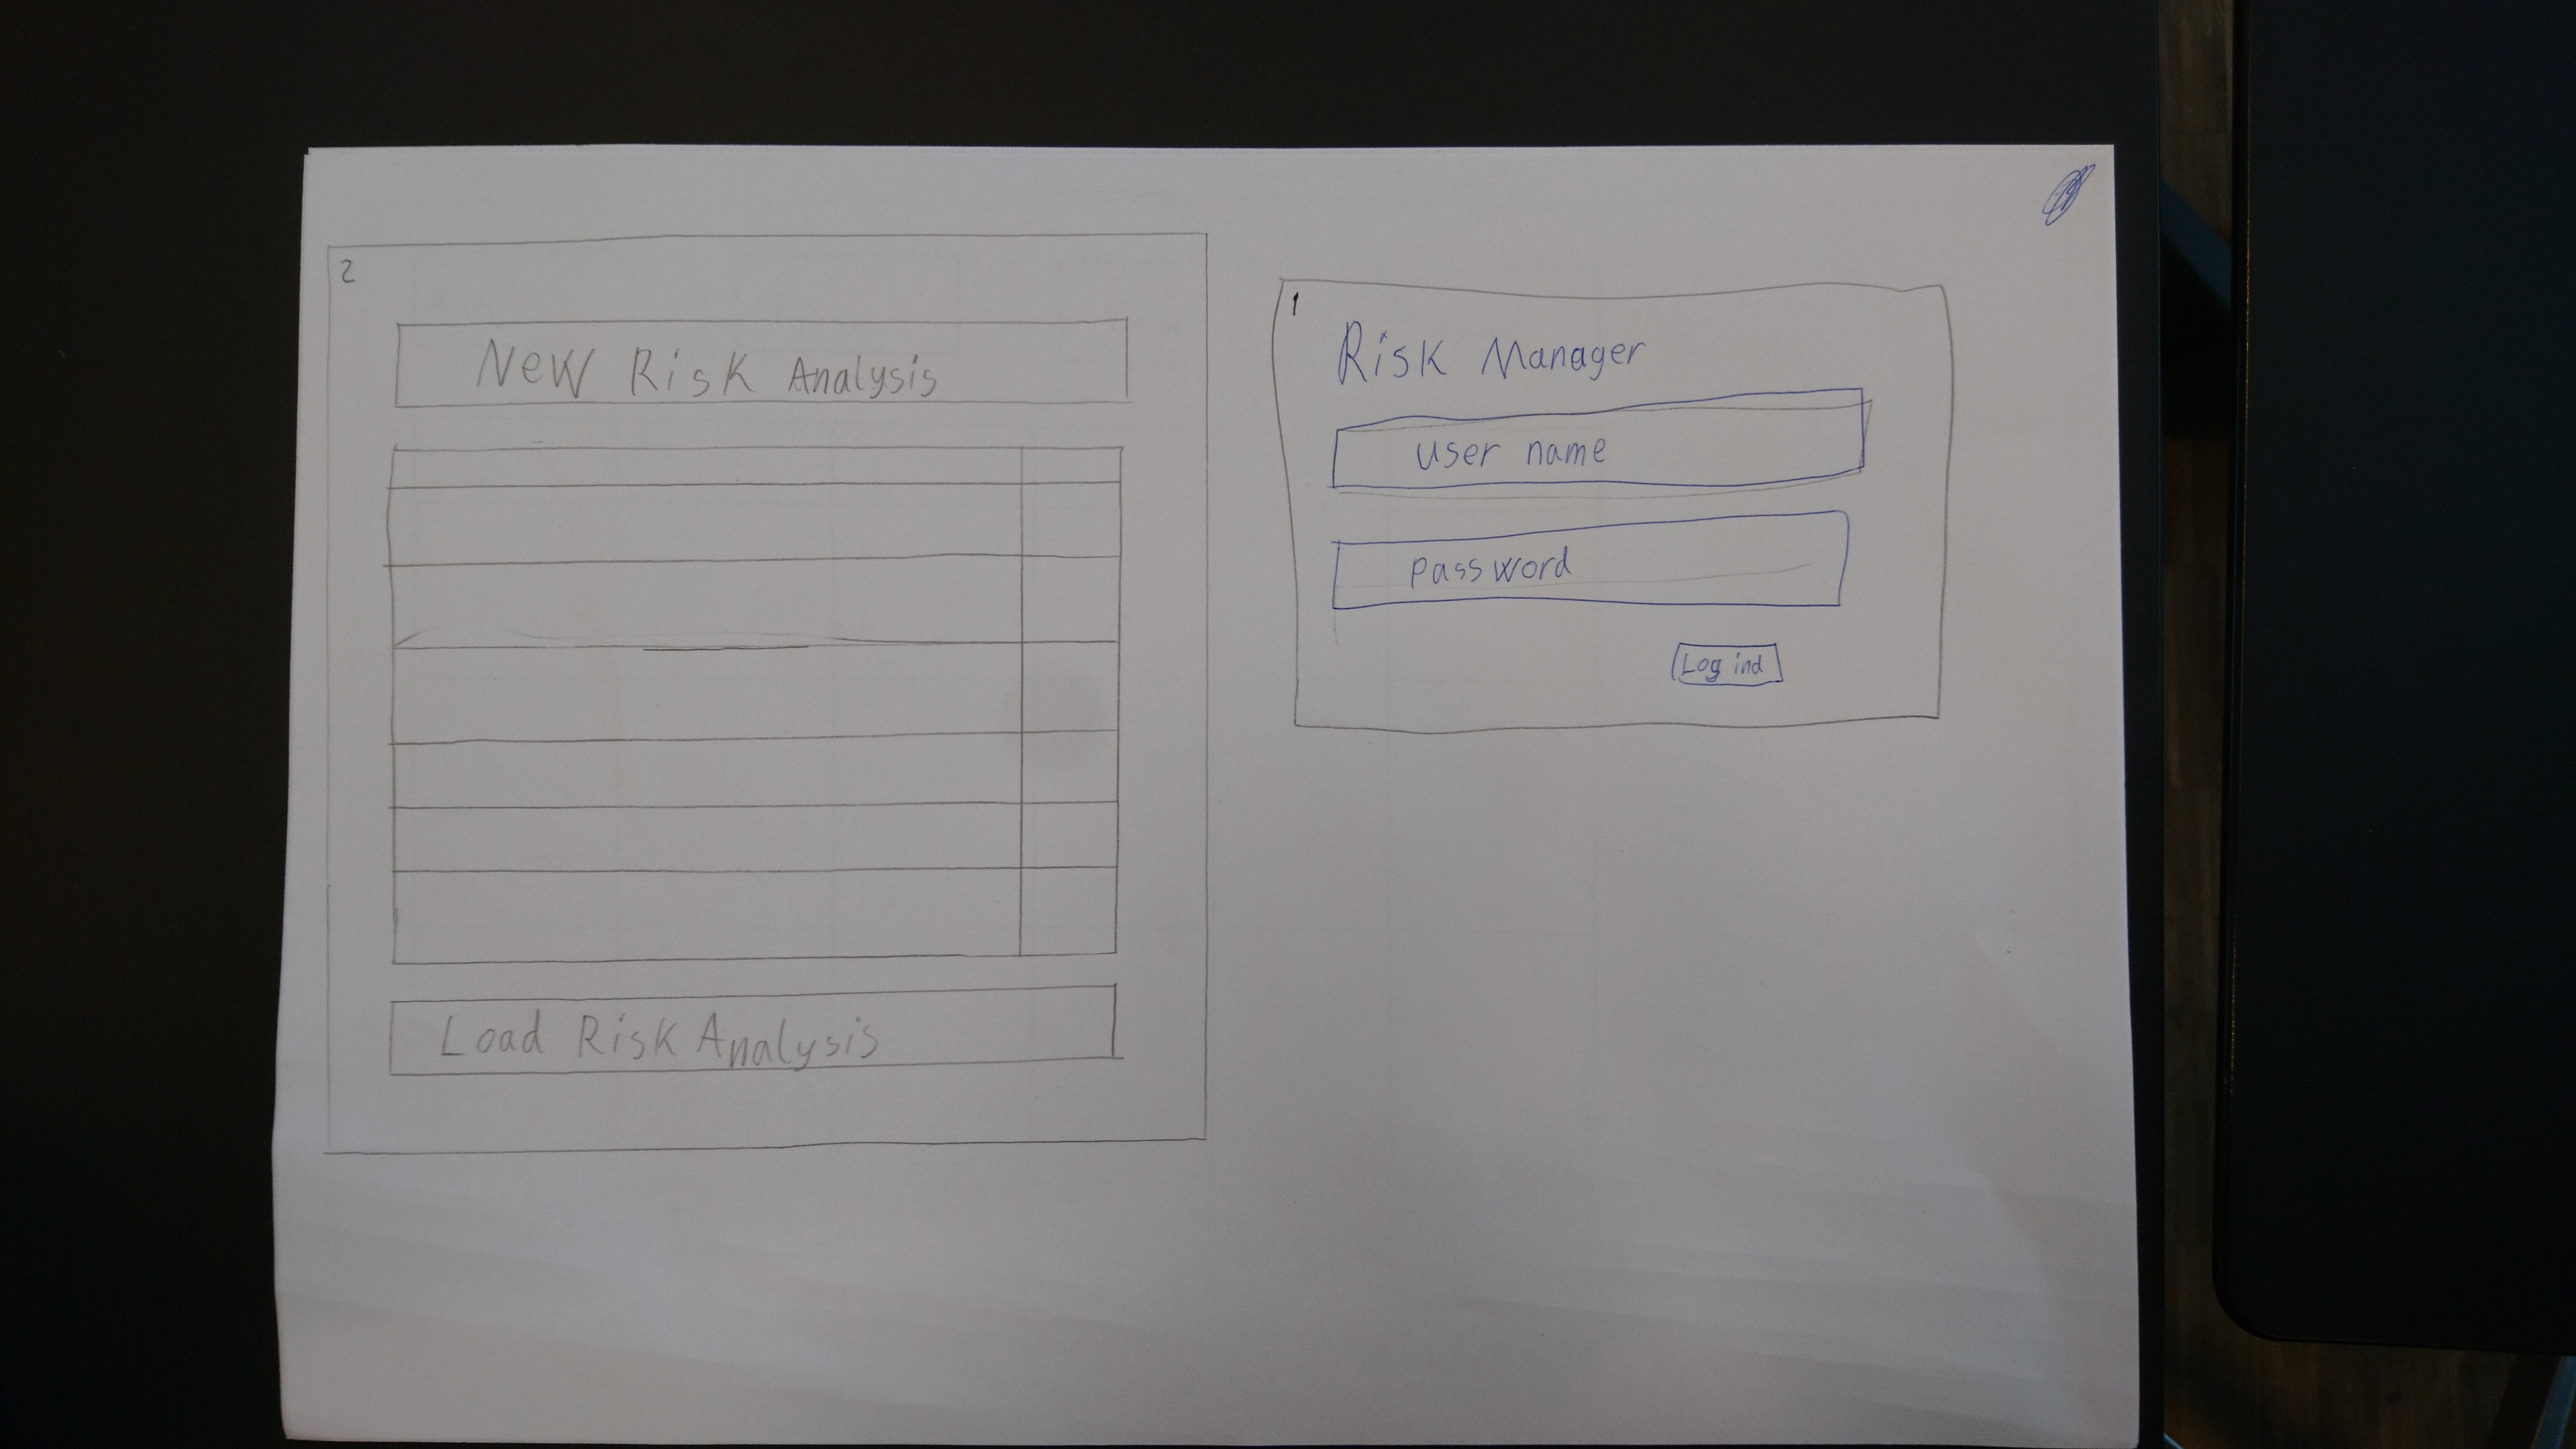 2
New Risk Analysis
Load Risk Analysis
1
Risk Manager
user name
password
Log ind